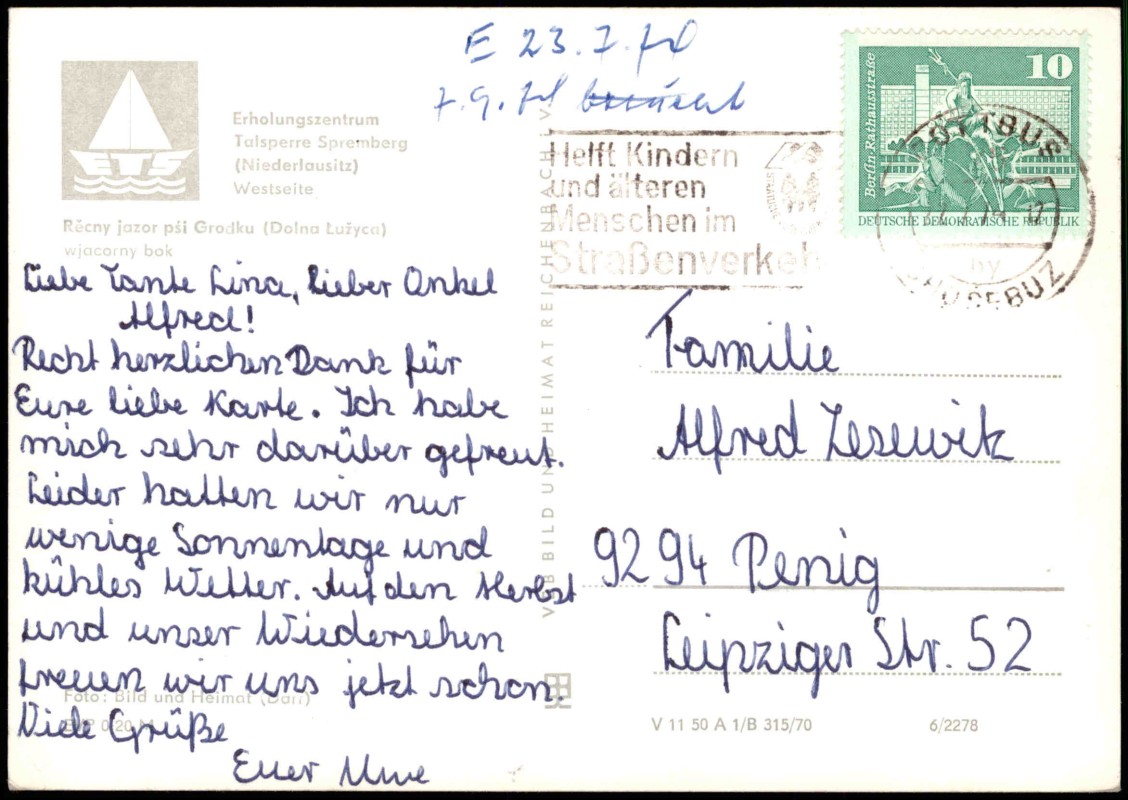 E 23.7.74
7.9.74
10
Berlin-Rathausstraße
DEUTSCHE DEMOKRATISCHE REPUBLIK
COTTBUS
CHOŚEBUZ
by
Helft Kindern
und älteren
Menschen im
Straßenverkehr
ETS
Erholungszentrum
Talsperre Spremberg
(Niederlausitz)
Westseite
Rěcny jazor pśi Grodku (Dolna Łužyca)
wjacorny bok
Liebe Tante Lina, Lieber Onkel
Alfred!
Recht herzlichen Dank für
Eure liebe Karte. Ich habe
mich sehr darüber gefreut.
Leider hatten wir nur
wenige Sonnentage und
kühles Wetter. Auf den Herbst
und unser Wiedersehen
freuen wir uns jetzt schon.
Viele Grüße
Euer Uwe
Foto: Bild und Heimat (Darr)
EVP 0,20 M
VEB BILD UND HEIMAT REICHENBACH I. V.
Familie
Alfred Zesewitz
9294 Penig
Leipziger Str. 52
V 11 50 A 1/B 315/70
6/2278